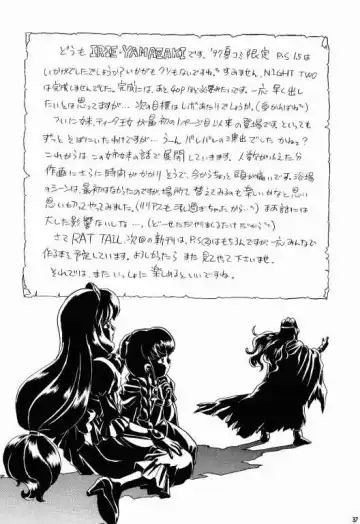 どうも IRIE・YAMAZAKIです。'97夏コミ限定 P.S 1.5は
いかがでしたでしょうか？いかがもクソもないですね。すみません。NIGHT TWO
は完成しませんでした。完成には、あと40Pほど必要みたいです。一応 早く出し
たいとは思ってますが…次の目標は
ついに妹、ティア王女が最初の1ページ目以来の登場です。といっても
ずっと そばにいたわけですが…うーん バレバレの演出でした かねぇ？
これからは この姉妹の話で展開していきます。人数がふえた分
作画に さらに時間がかかりそうで、今からちょっと頭が痛いです。浴場
のシーンは、最初はなかったのですが、場所で 替えてみるのも 楽しいかなと思い
思いきってやってみました。まあ話には
大した影響ないしな…
さて RAT TAIL 次回の新刊は、P.S②はもちろんですが 一応みんなで
作る本を予定しています。よろしかったら また 見てやって下さいませ。
それでは、また いっしょに 楽しめるといいですね。
37